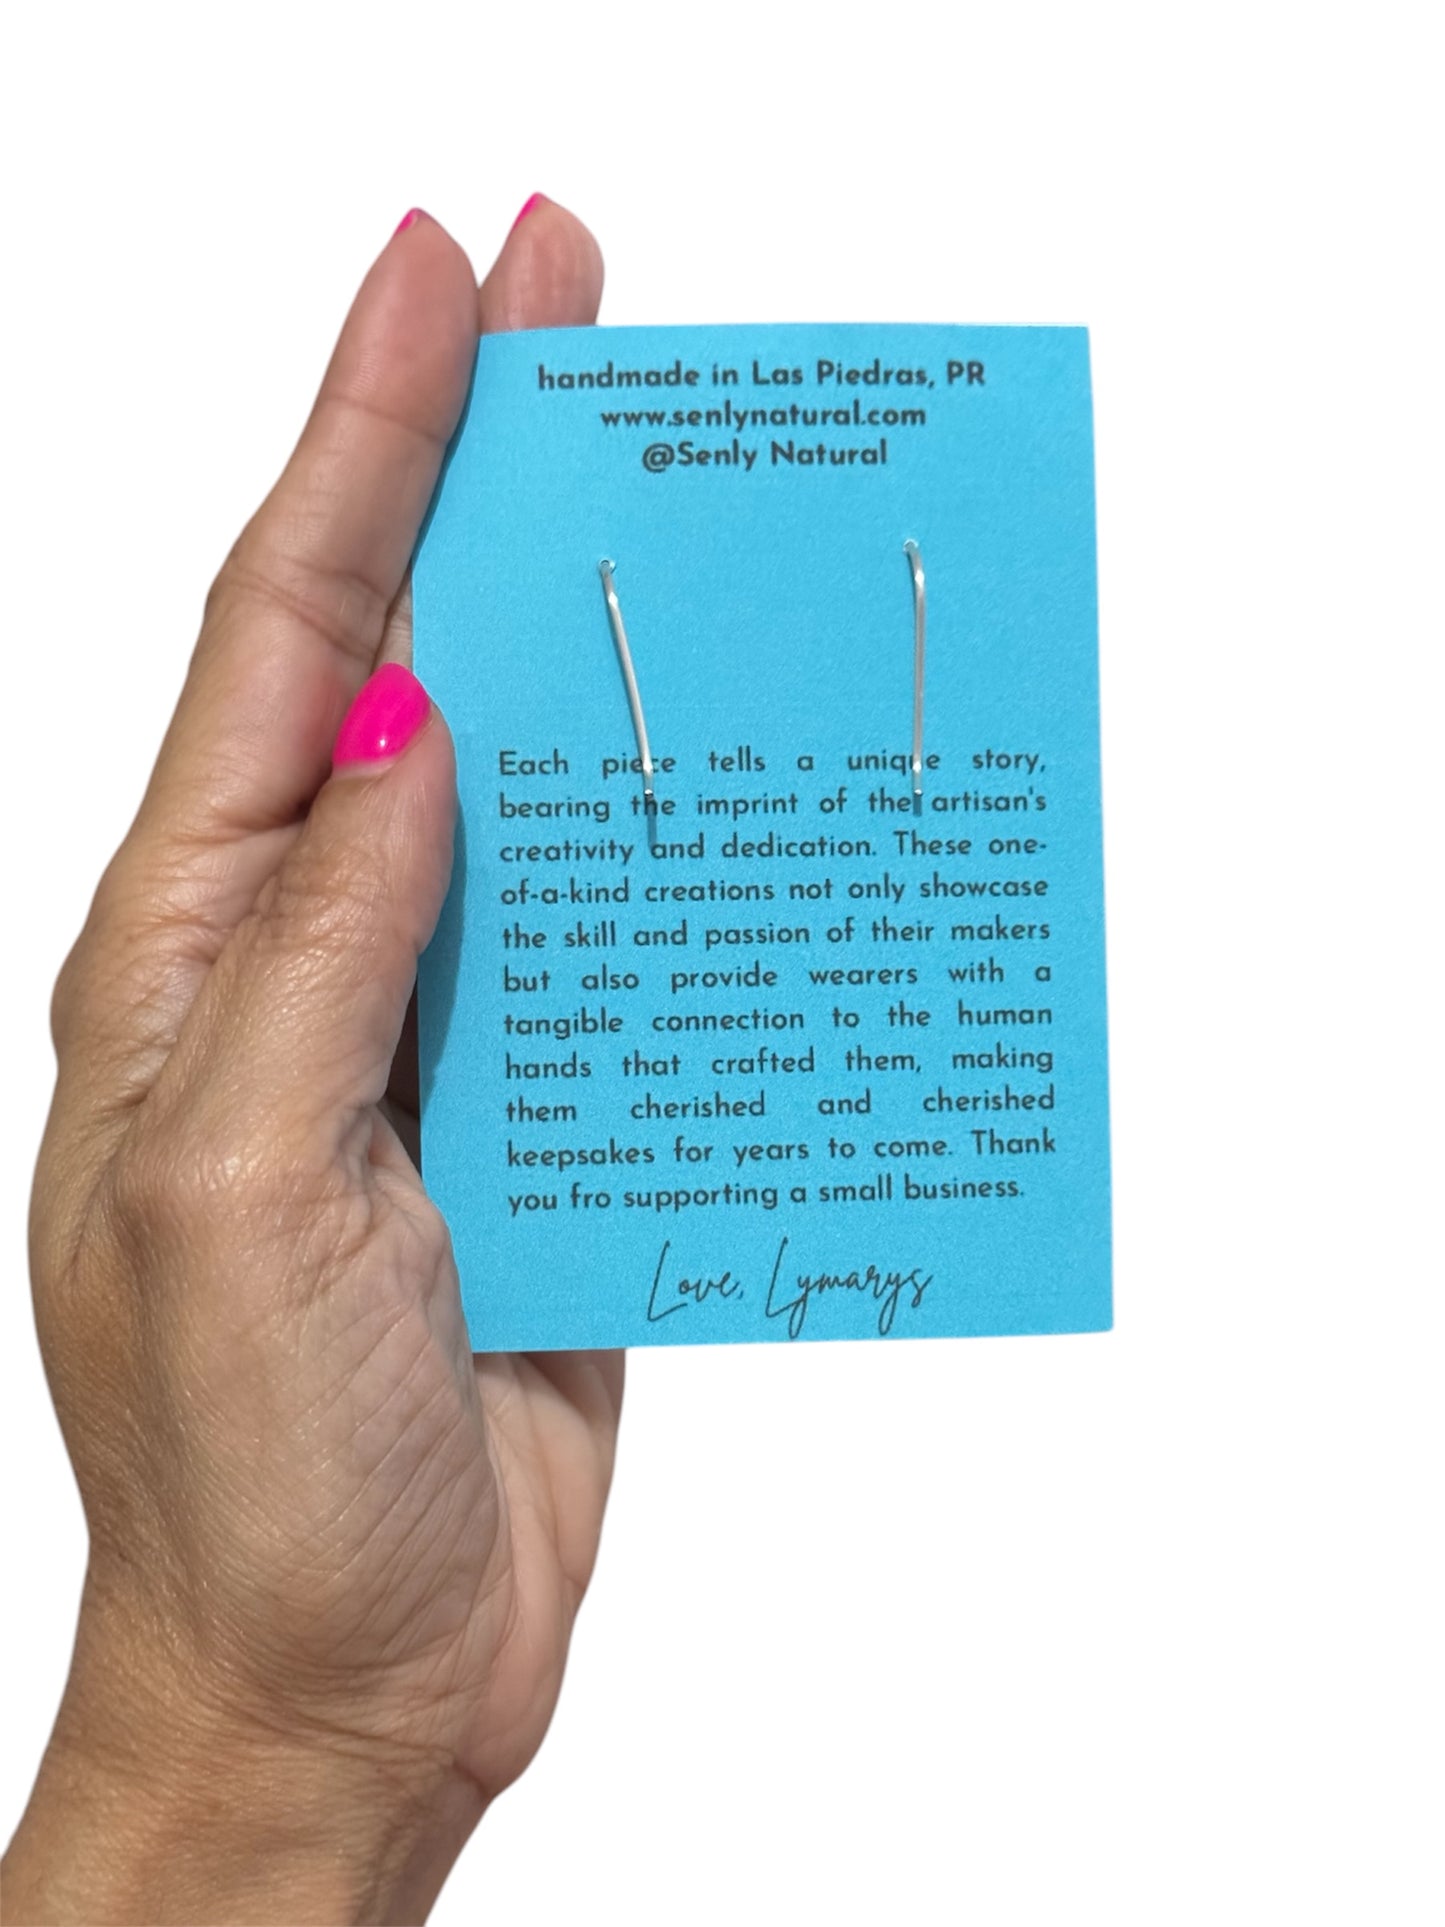 handmade in Las Piedras, PR
www.senlynatural.com
@Senly Natural
Each piece tells a unique story,
bearing the imprint of the artisan's
creativity and dedication. These one-
of-a-kind creations not only showcase
the skill and passion of their makers
but also provide wearers with a
tangible connection to the human
hands that crafted them, making
them cherished and cherished
keepsakes for years to come. Thank
you fro supporting a small business.
Love, Lymarys